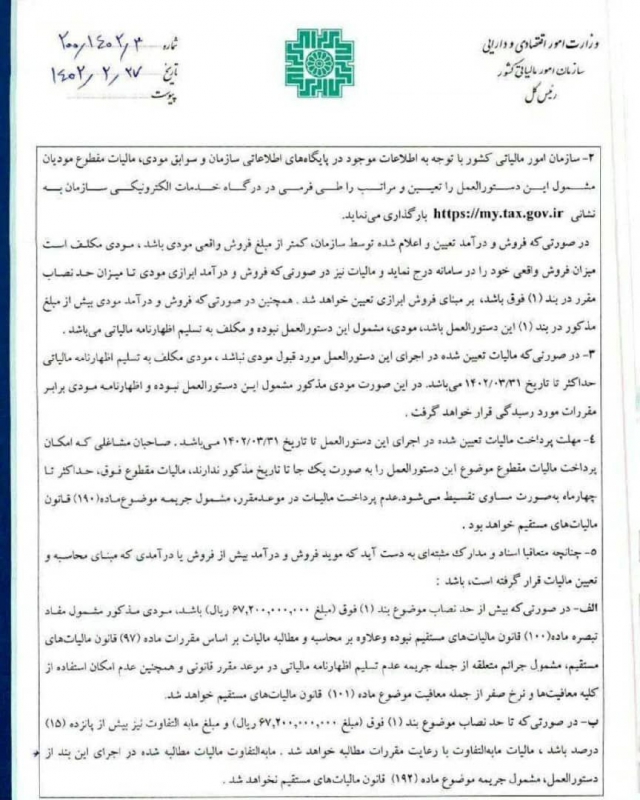 وزارت امور اقتصادی و دارایی
سازمان امور مالیاتی کشور
رئیس کل
شماره ۲۰۰/۱۴۰۲/۳
تاریخ ۱۴۰۲/۲/۲۷
پیوست
۲- سازمان امور مالیاتی کشور با توجه به اطلاعات موجود در پایگاه‌های اطلاعاتی سازمان و سوابق مودی، مالیات مقطوع مودیان
مشمول این دستورالعمل را تعیین و مراتب را طی فرمی در درگاه خدمات الکترونیکی سازمان به
نشانی https://my.tax.gov.ir بارگذاری می‌نماید.
در صورتی‌که فروش و درآمد تعیین و اعلام شده توسط سازمان، کمتر از مبلغ فروش واقعی مودی باشد ، مودی مکلف است
میزان فروش واقعی خود را در سامانه درج نماید و مالیات نیز در صورتی‌که فروش و درآمد ابرازی مودی تا میزان حد نصاب
مقرر در بند (۱) فوق باشد، بر مبنای فروش ابرازی تعیین خواهد شد . همچنین در صورتی‌که فروش و درآمد مودی بیش از مبلغ
مذکور در بند (۱) این دستورالعمل باشد، مودی، مشمول این دستورالعمل نبوده و مکلف به تسلیم اظهارنامه مالیاتی می‌باشد .
۳- در صورتی‌که مالیات تعیین شده در اجرای این دستورالعمل مورد قبول مودی نباشد ، مودی مکلف به تسلیم اظهارنامه مالیاتی
حداکثر تا تاریخ ۱۴۰۲/۰۳/۳۱ می‌باشد. در این صورت مودی مذکور مشمول این دستورالعمل نبوده و اظهارنامه مودی برابر
مقررات مورد رسیدگی قرار خواهد گرفت .
۴- مهلت پرداخت مالیات تعیین شده در اجرای این دستورالعمل تا تاریخ ۱۴۰۲/۰۳/۳۱ می‌باشد . صاحبان مشاغلی که امکان
پرداخت مالیات مقطوع موضوع این دستورالعمل را به صورت یک جا تا تاریخ مذکور ندارند، مالیات مقطوع فوق، حداکثر تا
چهارماه به‌صورت مساوی تقسیط می‌شود.عدم پرداخت مالیات در موعدمقرر، مشمول جریمه موضوع‌ماده(۱۹۰) قانون
مالیات‌های مستقیم خواهد بود .
۵- چنانچه متعاقبا اسناد و مدارک مثبته‌ای به دست آید که موید فروش و درآمد بیش از فروش یا درآمدی که مبنای محاسبه و
تعیین مالیات قرار گرفته است، باشد :
الف- در صورتی‌که بیش از حد نصاب موضوع بند (۱) فوق (مبلغ ۶۷,۲۰۰,۰۰۰,۰۰۰ ریال) باشد، مودی مذکور مشمول مفاد
تبصره ماده(۱۰۰) قانون مالیات‌های مستقیم نبوده وعلاوه بر محاسبه و مطالبه مالیات بر اساس مقررات ماده (۹۷) قانون مالیات‌های
مستقیم، مشمول جرائم متعلقه از جمله جریمه عدم تسلیم اظهارنامه مالیاتی در موعد مقرر قانونی و همچنین عدم امکان استفاده از
کلیه معافیت‌ها و نرخ صفر از جمله معافیت موضوع ماده (۱۰۱) قانون مالیات‌های مستقیم خواهد شد.
ب- در صورتی‌که تا حد نصاب موضوع بند (۱) فوق (مبلغ ۶۷,۲۰۰,۰۰۰,۰۰۰ ریال) و مبلغ مابه التفاوت نیز بیش از پانزده (۱۵)
درصد باشد ، مالیات مابه‌التفاوت با رعایت مقررات مطالبه خواهد شد . مابه‌التفاوت مالیات مطالبه شده در اجرای این بند از
دستورالعمل، مشمول جریمه موضوع ماده (۱۹۲) قانون مالیات‌های مستقیم نخواهد شد .